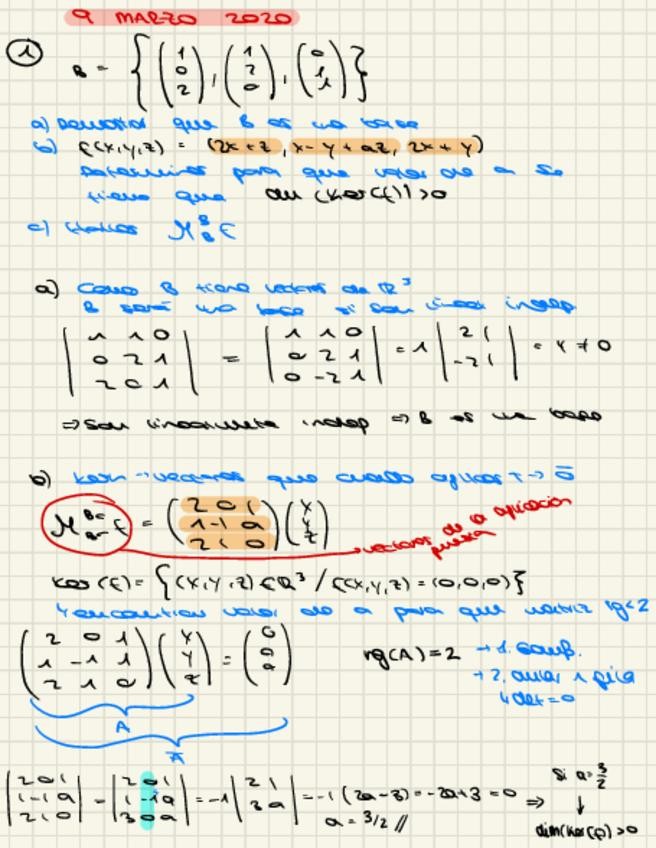 9 MARZO 2020
① B = { (1 0 2), (1 2 0), (0 1 1) }
a) Demostrar que B es una base
b) f(x,y,z) = (2x+z, x-y+az, 2x+y)
Determinar para que valor de a se
tiene que dim (Ker(f)) > 0
c) Hallar M B B f
a) Como B tiene vectores de R³
B será una base si son lineal indep
| 1 1 0 | | 1 1 0 |
| 0 2 1 | = | 0 2 1 | = 1 | 2 1 | = 4 ≠ 0
| 2 0 1 | | 0 -2 1 | | -2 1 |
⇒ son linealmente indep ⇒ B es una base
b) Kern → vectores que cuando aplicas f → 0̄
M Bc f = (2 0 1) (x)
(1 -1 a) (y)
(2 1 0) (z)
→ vectores de la aplicación
Ker(f) = {(x,y,z) ∈ R³ / f(x,y,z) = (0,0,0)}
encontrar valor de a para que matriz rg<2
(2 0 1) (x) (0)
(1 -1 1) (y) = (0)
(2 1 0) (z) (0)
rg(A) = 2 → 1.
→ 2.
det = 0
A
Ā
| 2 0 1 | | 2 0 1 |
| 1 -1 a | = | 1 -1 a | = -1 | 2 1 | = -1 (2a-3) = -2a+3 = 0 ⇒
| 2 1 0 | | 3 0 a | | 3 a |
a = 3/2 //
Si a = 3/2
↓
dim(Ker(f)) > 0